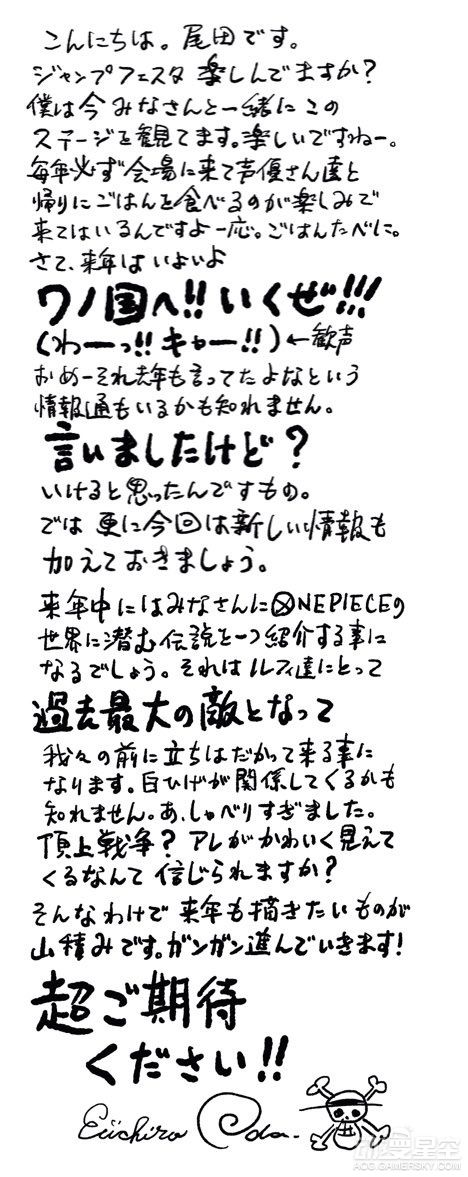 こんにちは。尾田です。
ジャンプフェスタ 楽しんでますか？
僕は今 みなさんと一緒に この
ステージを観てます。楽しいですねー。
毎年必ず会場に来て声優さん達と
帰りにごはんを食べるのが楽しみで
来てはいるんですよ一応。ごはんたべに。
さて、来年は いよいよ
ワノ国へ!! いくぜ!!!
(わーっ!! キャー!!) ←歓声
おめーそれ去年も言ってたよなという
情報通もいるかも知れません。
言いましたけど？
いけると思ったんですもの。
では 更に今回は新しい情報も
加えておきましょう。
来年中にはみなさんにONEPIECEの
世界に潜む伝説を一つ紹介する事に
なるでしょう。それはルフィ達にとって
過去最大の敵となって
我々の前に立ちはだかって来る事に
なります。白ひげが関係してくるかも
知れません。あ、しゃべりすぎました。
頂上戦争？ アレがかわいく見えて
くるなんて信じられますか？
そんなわけで 来年も描きたいものが
山積みです。ガンガン進んでいきます!
超ご期待
ください!!
Eiichiro Oda.
动漫星空
ACG.GAMERSKY.COM